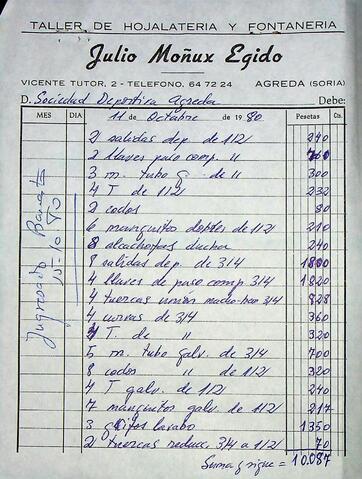 TALLER DE HOJALATERIA Y FONTANERIA
Julio Moñux Egido
VICENTE TUTOR, 2 - TELEFONO, 64 72 24 AGREDA (SORIA)
D. Sociedad Deportiva Agreda Debe:
MES DIA 11 de Octubre de 1980 Pesetas Cts.
2 salidas dep. de 1/2 240
2 llaves paso comp. "
3 m. tubo g. de " 300
4 T de 1/2 232
2 codos 80
6 manguitos dobles de 1/2 210
8 alcachofas ducha 240
8 salidas dep. de 3/4 1800
4 llaves de paso comp 3/4 1820
4 tuercas union macho-hao 3/4 828
4 curvas de 3/4 360
4 T. de " 320
5 m. tubo galv. de 3/4 700
8 codos " de 1/2 320
4 T galv. de 1/2 240
7 manguitos galv. de 1/2 217
3 grifos lavabo 1350
2 tuercas reducc. 3/4 a 1/2 70
Suma y sigue = 10.087
Ingresado Banesto
15-10-80